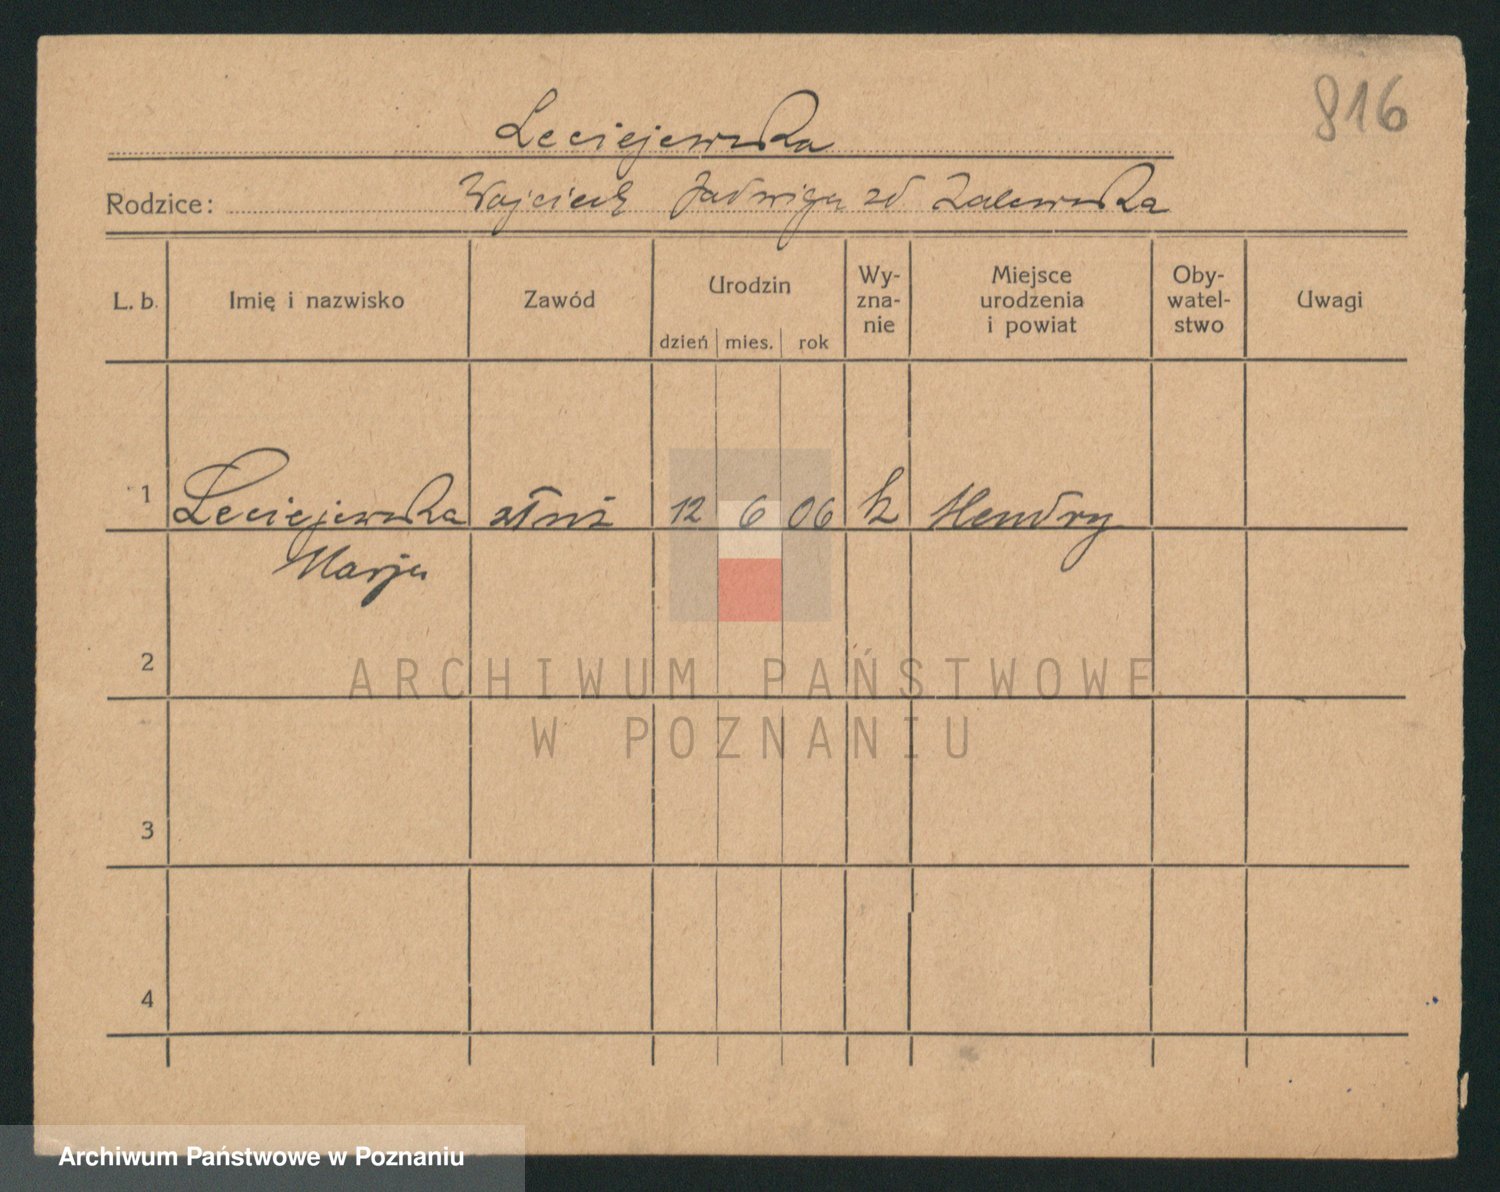 816
Leciejewska
Rodzice: Wojciech Jadwiga zd Zalewska
L. b. Imię i nazwisko Zawód Urodzin Wy-zna-nie Miejsce urodzenia i powiat Oby-watel-stwo Uwagi
dzień mies. rok
1 Leciejewska służ 12 6 06 k Mendry
Marja
2
ARCHIWUM PAŃSTWOWE
W POZNANIU
3
4
Archiwum Państwowe w Poznaniu